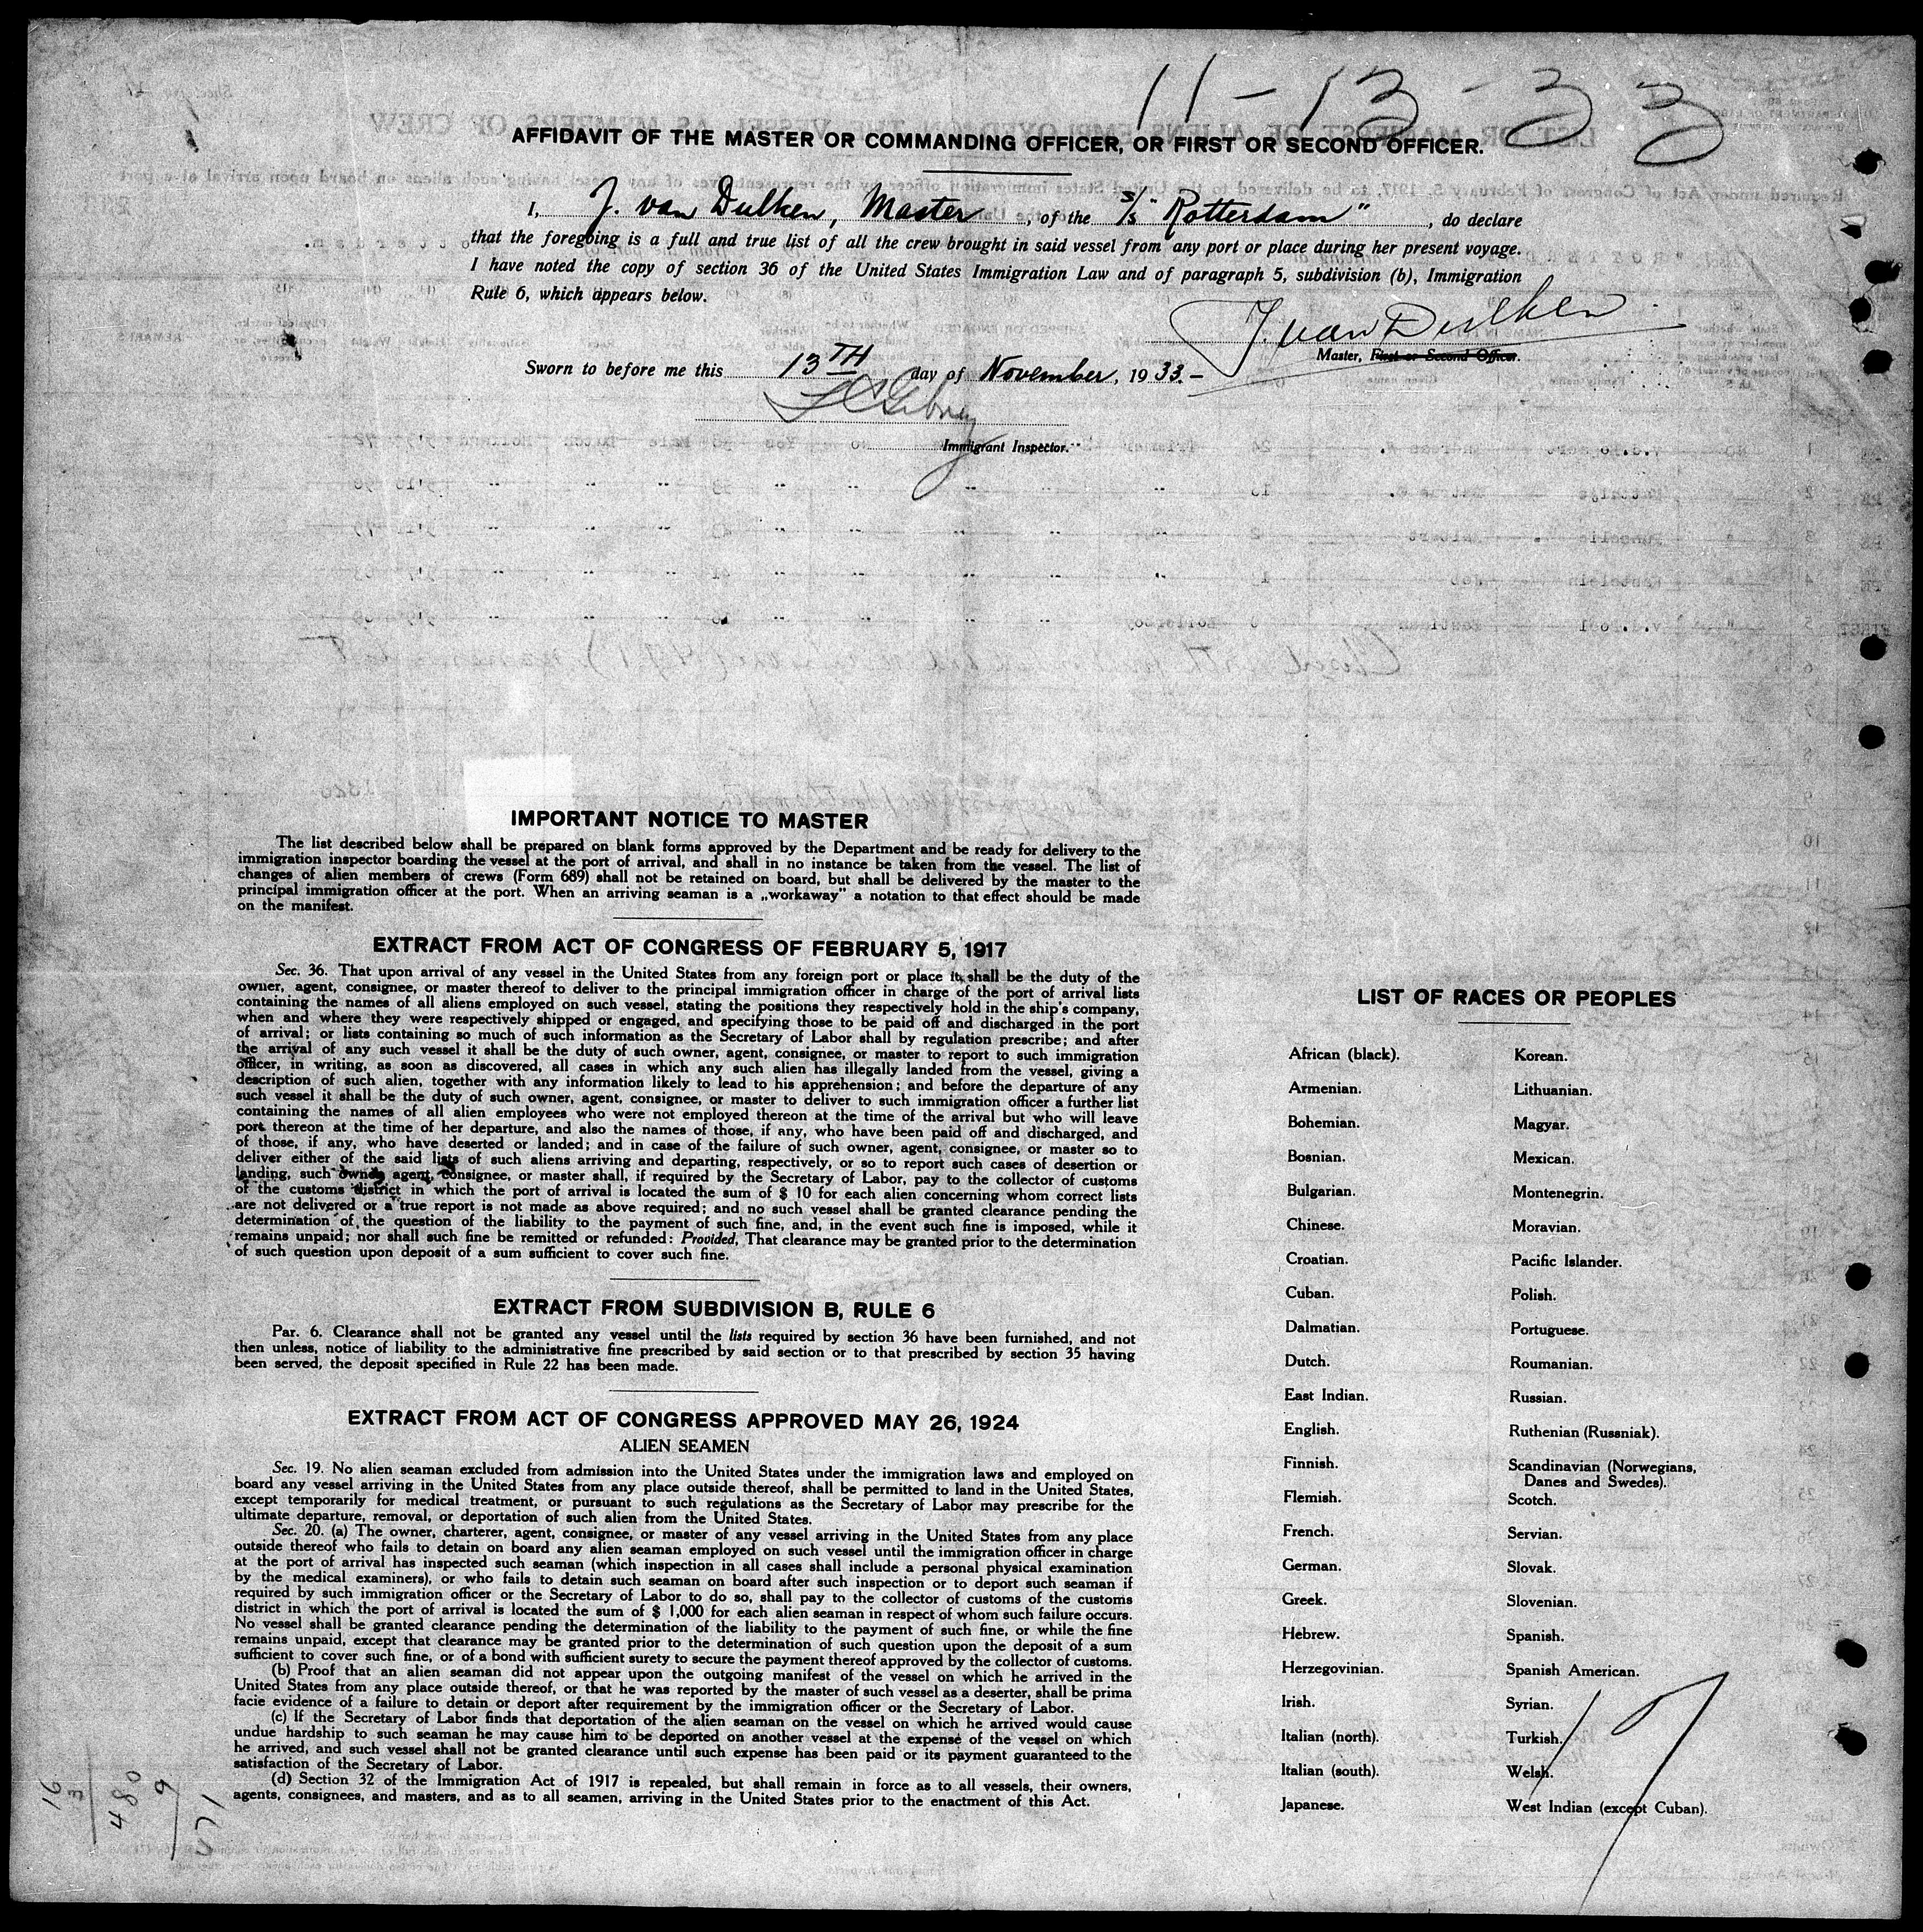 11-13-33
AFFIDAVIT OF THE MASTER OR COMMANDING OFFICER, OR FIRST OR SECOND OFFICER.
I, J. van Dulken, Master, of the S/S "Rotterdam", do declare
that the foregoing is a full and true list of all the crew brought in said vessel from any port or place during her present voyage.
I have noted the copy of section 36 of the United States Immigration Law and of paragraph 5, subdivision (b), Immigration
Rule 6, which appears below.
J. van Dulken
Master, First or Second Officer.
Sworn to before me this 13TH day of November, 1933.-
Immigrant Inspector.
IMPORTANT NOTICE TO MASTER
The list described below shall be prepared on blank forms approved by the Department and be ready for delivery to the
immigration inspector boarding the vessel at the port of arrival, and shall in no instance be taken from the vessel. The list of
changes of alien members of crews (Form 689) shall not be retained on board, but shall be delivered by the master to the
principal immigration officer at the port. When an arriving seaman is a „workaway" a notation to that effect should be made
on the manifest.
EXTRACT FROM ACT OF CONGRESS OF FEBRUARY 5, 1917
Sec. 36. That upon arrival of any vessel in the United States from any foreign port or place it shall be the duty of the
owner, agent, consignee, or master thereof to deliver to the principal immigration officer in charge of the port of arrival lists
containing the names of all aliens employed on such vessel, stating the positions they respectively hold in the ship's company,
when and where they were respectively shipped or engaged, and specifying those to be paid off and discharged in the port
of arrival; or lists containing so much of such information as the Secretary of Labor shall by regulation prescribe; and after
the arrival of any such vessel it shall be the duty of such owner, agent, consignee, or master to report to such immigration
officer, in writing, as soon as discovered, all cases in which any such alien has illegally landed from the vessel, giving a
description of such alien, together with any information likely to lead to his apprehension; and before the departure of any
such vessel it shall be the duty of such owner, agent, consignee, or master to deliver to such immigration officer a further list
containing the names of all alien employees who were not employed thereon at the time of the arrival but who will leave
port thereon at the time of her departure, and also the names of those, if any, who have been paid off and discharged, and
of those, if any, who have deserted or landed; and in case of the failure of such owner, agent, consignee, or master so to
deliver either of the said lists of such aliens arriving and departing, respectively, or so to report such cases of desertion or
landing, such owner, agent, consignee, or master shall, if required by the Secretary of Labor, pay to the collector of customs
of the customs district in which the port of arrival is located the sum of $ 10 for each alien concerning whom correct lists
are not delivered or a true report is not made as above required; and no such vessel shall be granted clearance pending the
determination of the question of the liability to the payment of such fine, and, in the event such fine is imposed, while it
remains unpaid; nor shall such fine be remitted or refunded: Provided, That clearance may be granted prior to the determination
of such question upon deposit of a sum sufficient to cover such fine.
EXTRACT FROM SUBDIVISION B, RULE 6
Par. 6. Clearance shall not be granted any vessel until the lists required by section 36 have been furnished, and not
then unless, notice of liability to the administrative fine prescribed by said section or to that prescribed by section 35 having
been served, the deposit specified in Rule 22 has been made.
EXTRACT FROM ACT OF CONGRESS APPROVED MAY 26, 1924
ALIEN SEAMEN
Sec. 19. No alien seaman excluded from admission into the United States under the immigration laws and employed on
board any vessel arriving in the United States from any place outside thereof, shall be permitted to land in the United States,
except temporarily for medical treatment, or pursuant to such regulations as the Secretary of Labor may prescribe for the
ultimate departure, removal, or deportation of such alien from the United States.
Sec. 20. (a) The owner, charterer, agent, consignee, or master of any vessel arriving in the United States from any place
outside thereof who fails to detain on board any alien seaman employed on such vessel until the immigration officer in charge
at the port of arrival has inspected such seaman (which inspection in all cases shall include a personal physical examination
by the medical examiners), or who fails to detain such seaman on board after such inspection or to deport such seaman if
required by such immigration officer or the Secretary of Labor to do so, shall pay to the collector of customs of the customs
district in which the port of arrival is located the sum of $ 1,000 for each alien seaman in respect of whom such failure occurs.
No vessel shall be granted clearance pending the determination of the liability to the payment of such fine, or while the fine
remains unpaid, except that clearance may be granted prior to the determination of such question upon the deposit of a sum
sufficient to cover such fine, or of a bond with sufficient surety to secure the payment thereof approved by the collector of customs.
(b) Proof that an alien seaman did not appear upon the outgoing manifest of the vessel on which he arrived in the
United States from any place outside thereof, or that he was reported by the master of such vessel as a deserter, shall be prima
facie evidence of a failure to detain or deport after requirement by the immigration officer or the Secretary of Labor.
(c) If the Secretary of Labor finds that deportation of the alien seaman on the vessel on which he arrived would cause
undue hardship to such seaman he may cause him to be deported on another vessel at the expense of the vessel on which
he arrived, and such vessel shall not be granted clearance until such expense has been paid or its payment guaranteed to the
satisfaction of the Secretary of Labor.
(d) Section 32 of the Immigration Act of 1917 is repealed, but shall remain in force as to all vessels, their owners,
agents, consignees, and masters, and as to all seamen, arriving in the United States prior to the enactment of this Act.
LIST OF RACES OR PEOPLES
African (black). Korean.
Armenian. Lithuanian.
Bohemian. Magyar.
Bosnian. Mexican.
Bulgarian. Montenegrin.
Chinese. Moravian.
Croatian. Pacific Islander.
Cuban. Polish.
Dalmatian. Portuguese.
Dutch. Roumanian.
East Indian. Russian.
English. Ruthenian (Russniak).
Finnish. Scandinavian (Norwegians,
Danes and Swedes).
Flemish. Scotch.
French. Servian.
German. Slovak.
Greek. Slovenian.
Hebrew. Spanish.
Herzegovinian. Spanish American.
Irish. Syrian.
Italian (north). Turkish.
Italian (south). Welsh.
Japanese. West Indian (except Cuban).
16
3
480
9
471
17